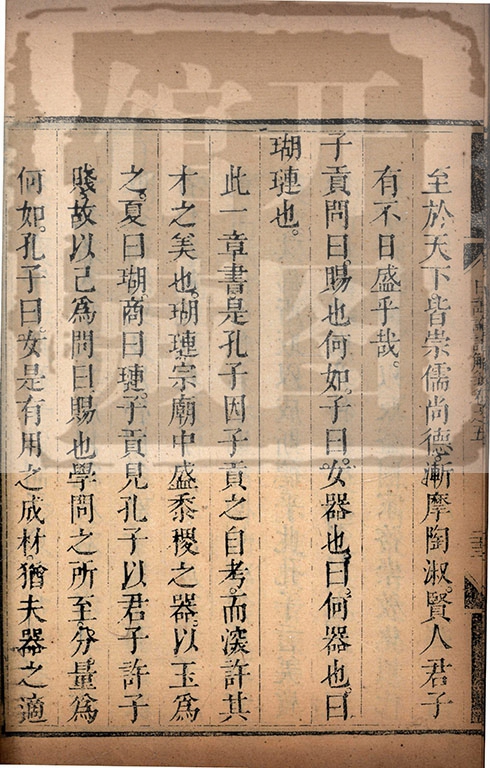 至於天下皆崇儒尚德。漸摩陶淑。賢人君子
有不日盛乎哉。
子貢問曰。賜也何如。子曰。女器也。曰。何器也。曰
瑚璉也。
此一章書是孔子因子貢之自考。而深許其
才之美也。瑚璉。宗廟中盛黍稷之器。以玉爲
之。夏曰瑚。商曰璉。子貢見孔子以君子許子
賤。故以己爲問曰。賜也學問之所至。分量爲
何如。孔子曰。女是有用之成材。猶夫器之適